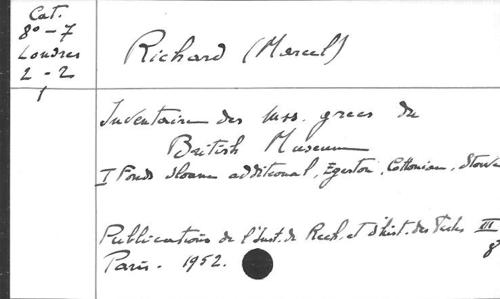 Cat.
8° - 7
Londres
2 - 2
1
Richard (Marcel)
Inventaire des mss. grecs du
British Museum
I Fonds Sloane additional, Egerton, Cottonian, Stowe
Publications de l'Inst. de Rech. et d'hist. des Textes III
8
Paris. 1952.